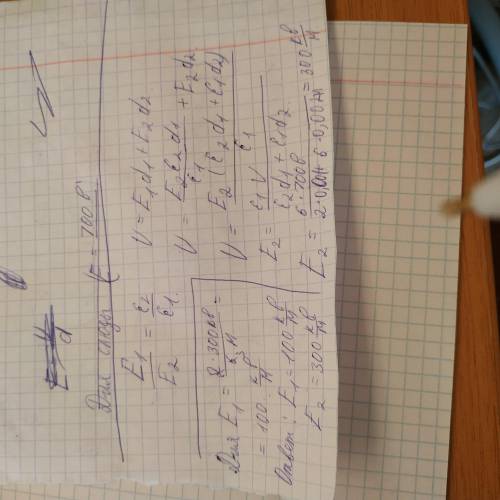 Для слюды U = 700 В.
E1/E2 = ε2/ε1.
U = E1d1 + E2d2
U = E2ε2d1/ε1 + E2d2
U = E2 (ε2d1 + ε1d2)/ε1
E2 = ε1U/(ε2d1 + ε1d2)
E2 = 6·700 В/(2·0,001 + 6·0,002 м) = 300 кВ/м
Для E1 = 2·300 кВ/6 м =
= 100 кВ/м
Ответ: E1 = 100 кВ/м
E2 = 300 кВ/м